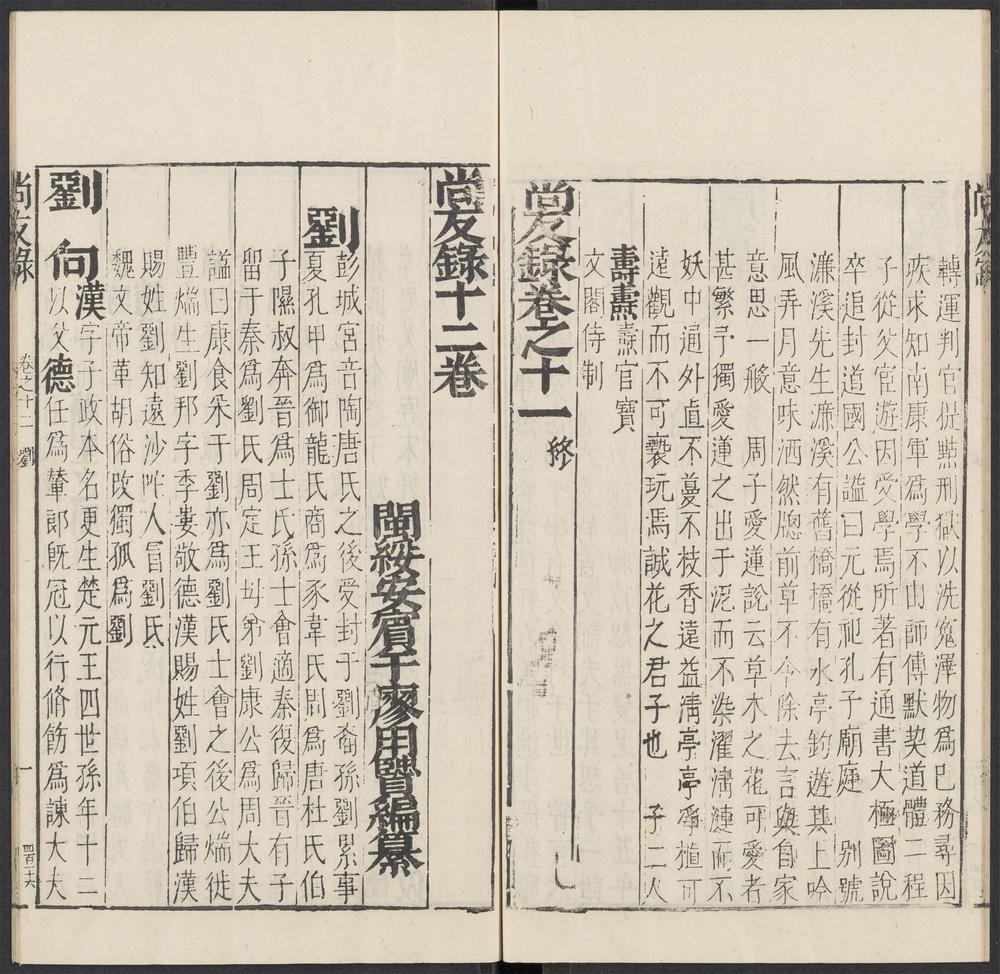 轉運判官提㸃刑獄以洗寃澤物爲已務尋因
疾求知南康軍爲學不由師傅默契道體二程
子從父宦遊因受學焉所著有通書太極圖說
卒追封道國公謚曰元從祀孔子廟庭　別號
濂溪先生濂溪有舊橋橋有水亭釣遊其上吟
風弄月意味洒然牕前草不令除去言與自家
意思一般　周子愛蓮說云草木之花可愛者
甚繁予獨愛蓮之出于泥而不染濯淸漣而不
妖中通外直不蔓不枝香遠益淸亭亭淨植可
遠觀而不可褻玩焉誠花之君子也　子二人
壽燾燾官寶
文閣侍制
尚友錄卷之十一 終
尚友錄十二卷
閩綏安賓于廖用賢編纂
劉 彭城宮音陶唐氏之後受封于劉裔孫劉累事
夏孔甲爲御龍氏商爲豕韋氏周爲唐杜氏伯
子隰叔奔晉爲士氏孫士會適秦復歸晉有子
留于秦爲劉氏周定王母弟劉康公爲周大夫
謚曰康食采于劉亦爲劉氏士會之後公爀徙
豐爀生劉邦字季婁敬德漢賜姓劉項伯歸漢
賜姓劉知遠沙陀人冒劉氏
魏文帝革胡俗改獨孤爲劉
劉向 漢字子政本名更生楚元王四世孫年十二
以父德任爲輦郞旣冠以行修飭爲諫大夫
尚友錄 卷之十二 劉 一 四百六